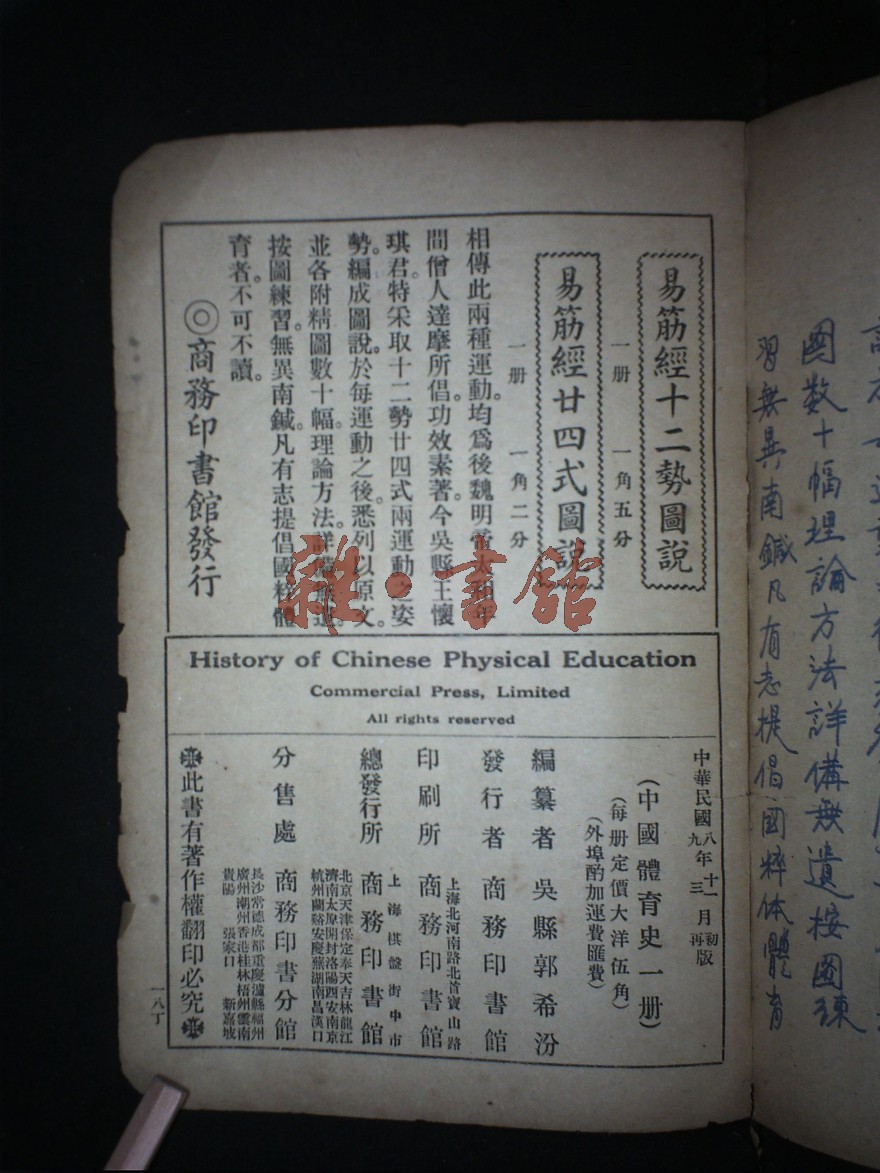 易筋經十二勢圖說
一册 一角五分
易筋經廿四式圖說
一册 一角二分
相傳此兩種運動。均爲後魏明帝太和年
間僧人達摩所倡。功效素著。今吳縣王懷
琪君。特采取十二勢廿四式兩運動之姿
勢。編成圖說。於每運動之後。悉列以原文。
並各附精圖數十幅。理論方法。詳備無遺。
按圖練習。無異南鍼。凡有志提倡國粹體
育者。不可不讀。
◎商務印書館發行
雜·書館
History of Chinese Physical Education
Commercial Press, Limited
All rights reserved
中華民國八年十一月初版
九 三 再
(中國體育史一册)
(每册定價大洋伍角)
(外埠酌加運費匯費)
編纂者 吳縣郭希汾
發行者 商務印書館
上海北河南路北首寶山路
印刷所 商務印書館
上海棋盤街中市
總發行所 商務印書館
北京天津保定奉天吉林龍江
濟南太原開封洛陽西安南京
杭州蘭谿安慶蕪湖南昌漢口
分售處 商務印書分館
長沙常德成都重慶瀘縣福州
廣州潮州香港桂林梧州雲南
貴陽 張家口 新嘉坡
此書有著作權翻印必究
一八丁
圖数十幅理論方法詳備無遺按圖練
習無異南鍼凡有志提倡國粹体體育